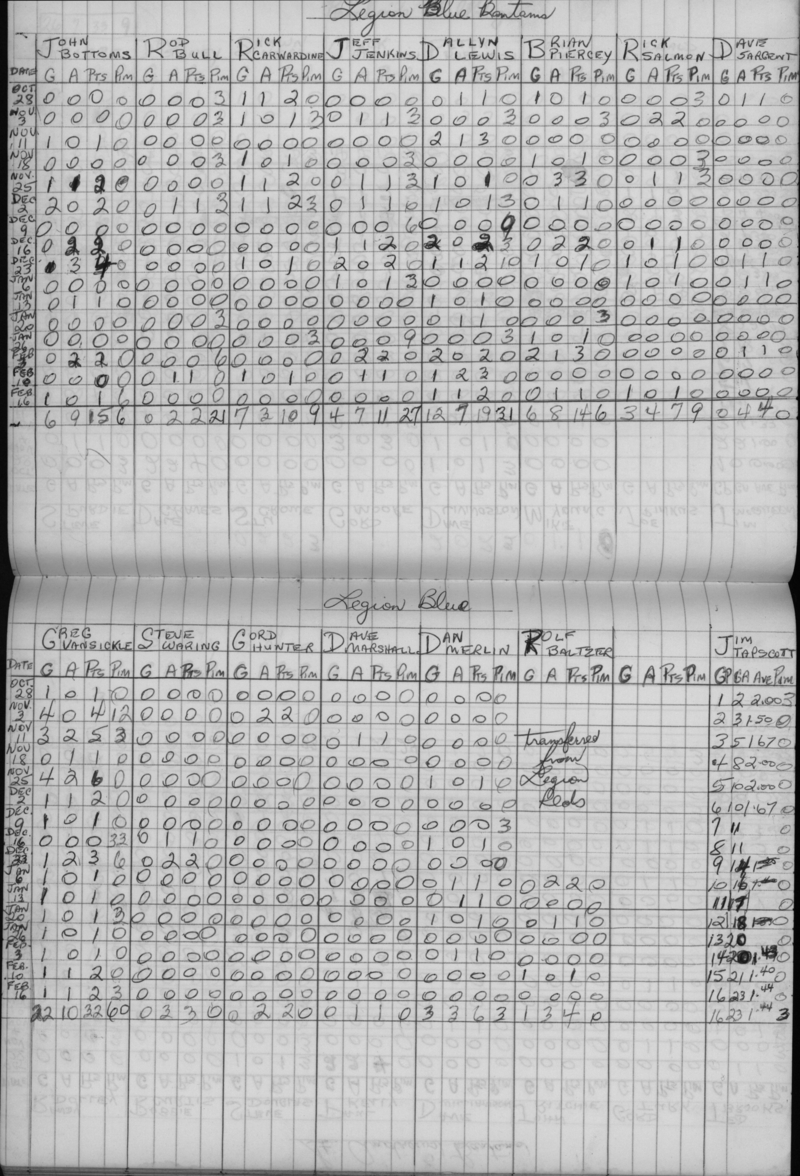 Legion Blue Bantams
JOHN BOTTOMS ROD BULL RICK CARWARDINE JEFF JENKINS DALLYN LEWIS BRIAN PIERCEY RICK SALMON DAVE SARGENT
DATE G A Pts Pim G A Pts Pim G A Pts Pim G A Pts Pim G A Pts Pim G A Pts Pim G A Pts Pim G A Pts Pim
OCT 28 0 0 0 0 0 0 0 3 1 1 2 0 0 0 0 0 0 1 1 0 1 0 1 0 0 0 0 3 0 1 1 0
NOV 3 0 0 0 0 0 0 0 3 1 0 1 3 0 1 1 3 0 0 0 3 0 0 0 3 0 2 2 0 0 0 0 0
NOV 11 1 0 1 0 0 0 0 0 0 0 0 0 0 0 0 0 2 1 3 0 0 0 0 0 0 0 0 0 0 0 0 0
NOV 18 0 0 0 0 0 0 0 3 1 0 1 0 0 0 0 3 0 0 0 0 1 0 1 0 0 0 0 3 0 0 0 0
NOV. 25 1 1 2 0 0 0 0 0 1 1 2 0 0 1 1 3 1 0 1 0 0 3 3 0 0 1 1 3 0 0 0 0
DEC 2 2 0 2 0 0 1 1 3 1 1 2 3 0 1 1 0 1 0 1 3 0 1 1 0 0 0 0 0 0 0 0 0
DEC. 9 0 0 0 0 0 0 0 0 0 0 0 0 0 0 0 6 0 0 0 9 0 0 0 0 0 0 0 0 0 0 0 0
DEC 16 0 2 2 0 0 0 0 0 0 0 0 0 1 1 2 0 2 0 2 3 0 2 2 0 0 1 1 0 0 0 0 0
DEC 23 3 4 0 0 0 0 0 1 0 1 0 2 0 2 0 1 1 2 10 1 0 1 0 1 0 1 0 0 1 1 0
JAN 6 0 0 0 0 0 0 0 0 0 0 0 0 1 0 1 3 0 0 0 0 0 0 0 0 1 0 1 0 0 1 1 0
JAN 13 0 1 1 0 0 0 0 0 0 0 0 0 0 0 0 0 1 0 1 0 0 0 0 0 0 0 0 0 0 0 0 0
JAN 20 0 0 0 0 0 0 0 3 0 0 0 0 0 0 0 0 0 1 1 0 0 0 0 3 0 0 0 0 0 0 0 0
JAN 26 0 0 0 0 0 0 0 0 0 0 0 3 0 0 0 9 0 0 0 3 1 0 1 0 0 0 0 0 0 0 0 0
FEB 3 0 2 2 0 0 0 0 6 0 0 0 0 0 2 2 0 2 0 2 0 2 1 3 0 0 0 0 0 0 1 1 0
FEB 10 0 0 0 0 0 1 1 0 1 0 1 0 0 1 1 0 1 2 3 0 0 0 0 0 0 0 0 0 0 0 0 0
FEB 16 1 0 1 6 0 0 0 0 0 0 0 0 0 0 0 0 1 1 2 0 0 1 1 0 1 0 1 0 0 0 0 0
6 9 15 6 0 2 2 21 7 3 10 9 4 7 11 27 12 7 19 31 6 8 14 6 3 4 7 9 0 4 4 0
Legion Blue
GREG VANSICKLE STEVE WARING GORD HUNTER DAVE MARSHALL DAN MERLIN ROLF BALTZER JIM TAPSCOTT
DATE G A Pts Pim G A Pts Pim G A Pts Pim G A Pts Pim G A Pts Pim G A Pts Pim G A Pts Pim GP GA Ave Pim
OCT. 28 1 0 1 0 0 0 0 0 0 0 0 0 0 0 0 0 0 0 0 0 1 2 2.00 3
NOV. 3 4 0 4 12 0 0 0 0 0 2 2 0 0 0 0 0 0 0 0 0 2 3 1.50 0
NOV 11 3 2 5 3 0 0 0 0 0 0 0 0 0 1 1 0 0 0 0 0 transferred 3 5 1.67 0
NOV 18 0 1 1 0 0 0 0 0 0 0 0 0 0 0 0 0 0 0 0 0 from 4 8 2.00 0
NOV 25 4 2 6 0 0 0 0 0 0 0 0 0 0 0 0 0 1 0 1 0 Legion 5 10 2.00 0
DEC 2 1 1 2 0 0 0 0 0 0 0 0 0 0 0 0 0 0 0 0 0 Reds 6 10 1.67 0
DEC. 9 1 0 1 0 0 0 0 0 0 0 0 0 0 0 0 0 0 0 0 3 7 11 0
DEC. 16 0 0 0 33 0 1 1 0 0 0 0 0 0 0 0 0 1 0 1 0 8 11 0
DEC 23 1 2 3 6 0 2 2 0 0 0 0 0 0 0 0 0 0 0 0 0 9 14 0
JAN 6 1 0 1 0 0 0 0 0 0 0 0 0 0 0 0 0 0 1 1 0 0 2 2 0 10 16 0
JAN 13 1 0 1 0 0 0 0 0 0 0 0 0 0 0 0 0 0 1 1 0 0 0 0 0 11 17 0
JAN 20 1 0 1 3 0 0 0 0 0 0 0 0 0 0 0 0 1 0 1 0 0 1 1 0 12 18 0
JAN 26 1 0 1 0 0 0 0 0 0 0 0 0 0 0 0 0 0 0 0 0 0 0 0 0 13 20 0
FEB. 3 1 0 1 0 0 0 0 0 0 0 0 0 0 0 0 0 0 1 1 0 0 0 0 0 14 20 1.43 0
FEB. 10 1 1 2 0 0 0 0 0 0 0 0 0 0 0 0 0 0 0 0 0 1 0 1 0 15 21 1.40 0
FEB 16 1 1 2 3 0 0 0 0 0 0 0 0 0 0 0 0 0 0 0 0 0 0 0 0 16 23 1.44 0
22 10 32 60 0 3 3 0 0 2 2 0 0 1 1 0 3 3 6 3 1 3 4 0 16 23 1.44 3